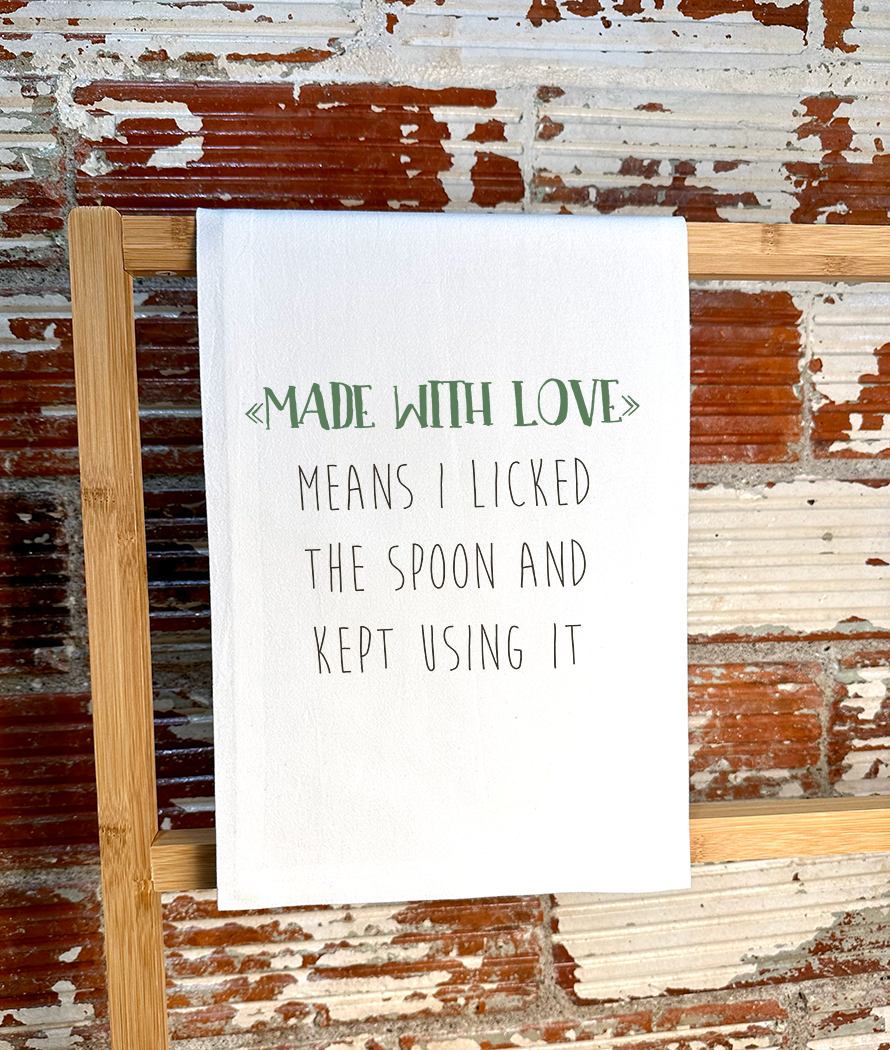 «MADE WITH LOVE»
MEANS I LICKED
THE SPOON AND
KEPT USING IT